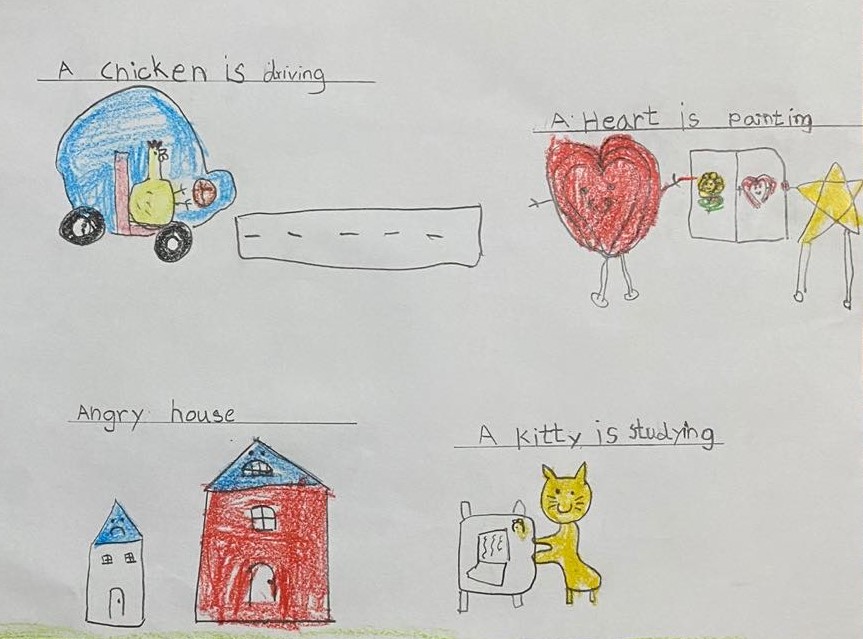 A chicken is driving
A Heart is painting
Angry house
A kitty is studying